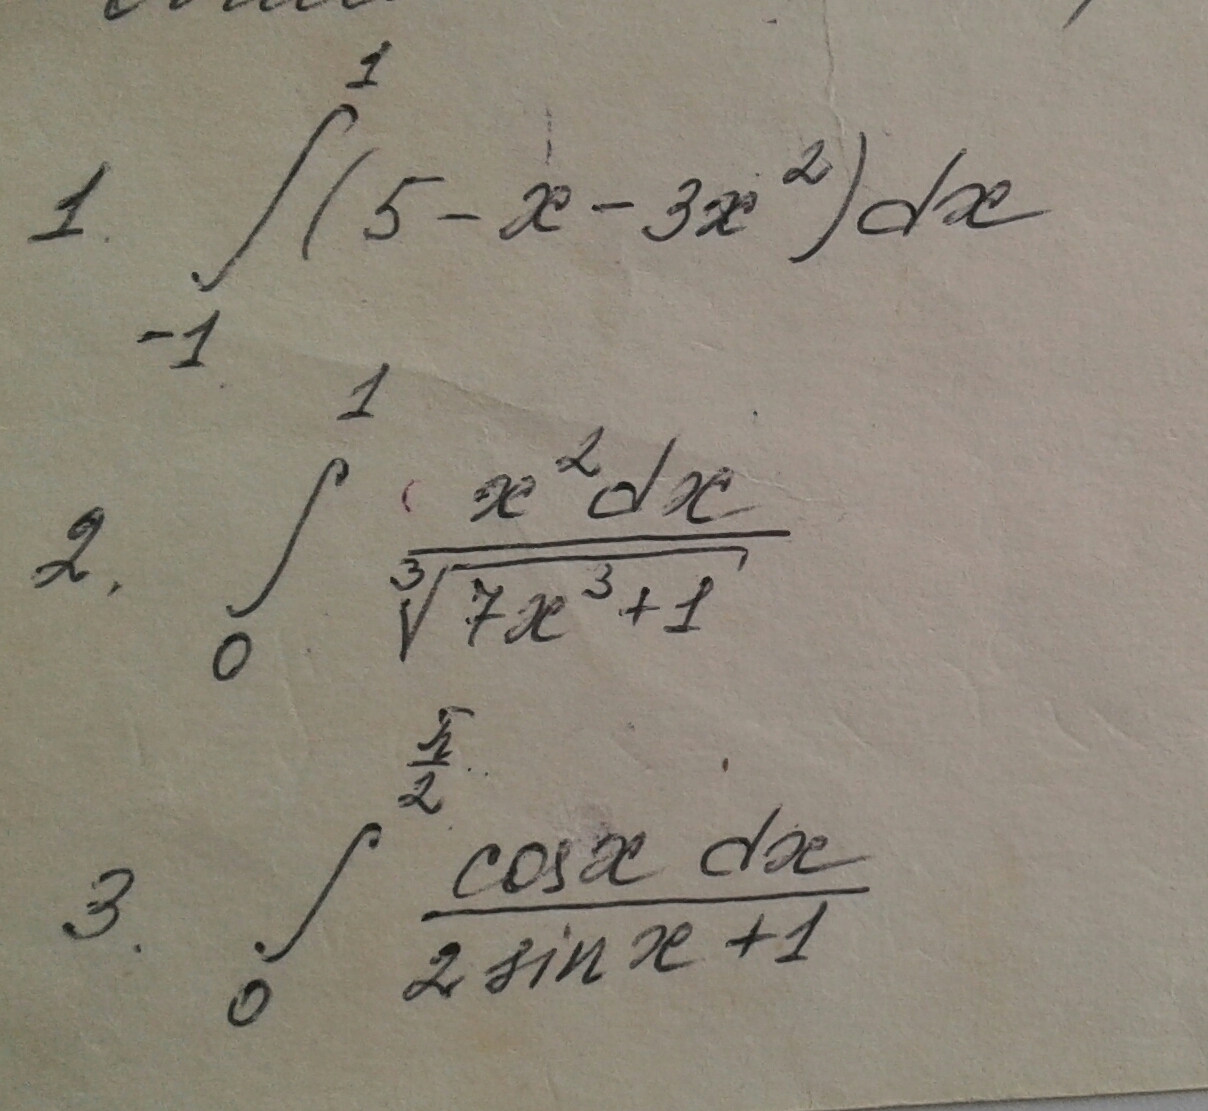 1. ∫₋₁¹ (5 - x - 3x²) dx
2. ∫₀¹ x² dx / ∛(7x³ + 1)
3. ∫₀^(π/2) cos x dx / (2 sin x + 1)